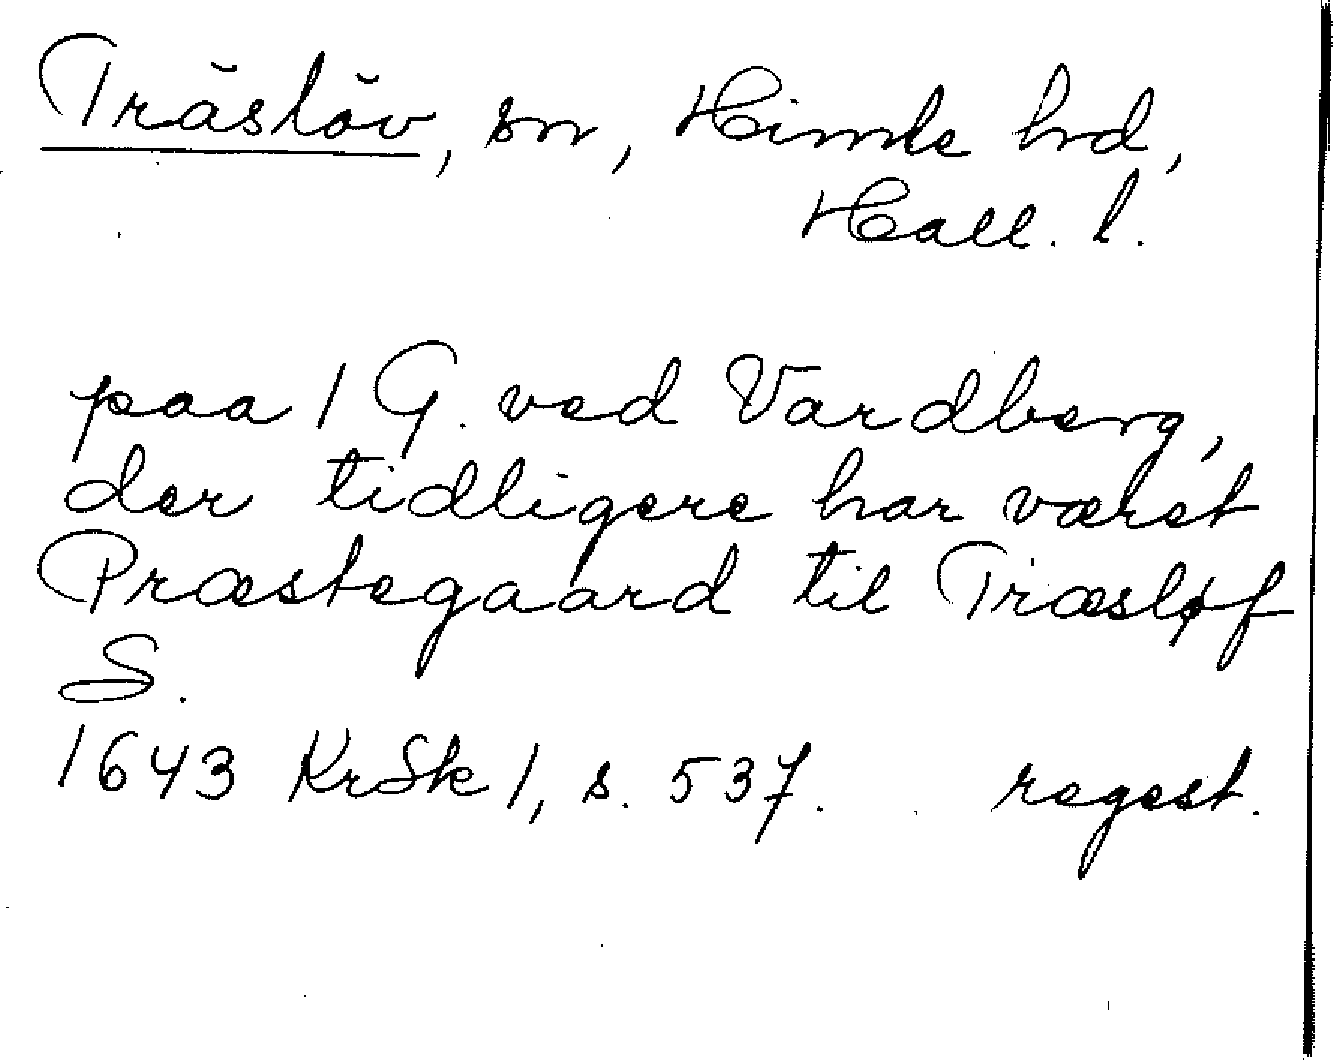 Träslöv, sn, Himle hrd,
Hall. l.
paa 1 G. ved Vardberg,
der tidligere har været
Præstegaard til Træsløf
S.
1643 KrSk 1, s. 537. regest.